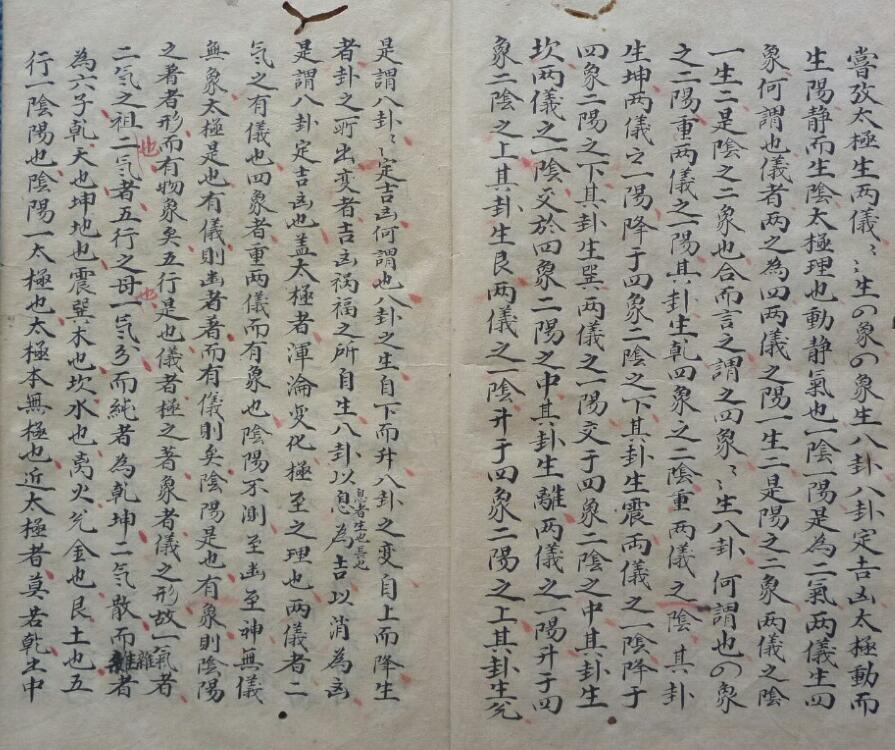 嘗攷太極生兩儀〻〻生四象四象生八卦八卦定吉凶太極動而
生陽静而生陰太極理也動静氣也一陰一陽是為二氣两儀生四
象何謂也儀者两之為四两儀之陽一生二是陽之二象两儀之陰
一生二是陰之二象也合而言之謂之四象〻〻生八卦何謂也四象
之二陽重两儀之一陽其卦生乾四象之二陰重两儀之陰其卦
生坤两儀之一陽降于四象二陰之下其卦生震両儀之一陰降于
四象二陽之下其卦生巽两儀之一陽交于四象二陰之中其卦生
坎两儀之一陰交於四象二陽之中其卦生離两儀之一陽升于四
象二陰之上其卦生艮两儀之一陰升于四象二陽之上其卦生兊
是謂八卦〻〻定吉凶何謂也八卦之生自下而升八卦之变自上而降生
者卦之所出变者吉凶禍福之所自生八卦以息息者生也長也為吉以消為凶
是謂八卦定吉凶也盖太極者渾淪变化極至之理也两儀者二
氣之有儀也四象者重两儀而有象也陰陽不測至幽至神無儀
無象太極是也有儀則幽者著而有儀則矣陰陽是也有象則陰陽
之著者形而有物象矣五行是也儀者極之著象者儀之形故一氣者
二氣之祖也二氣者五行之母也一氣分而純者為乾坤二氣散而雜雜者
為六子乾天也坤地也震巽木也坎水也离火兊金也艮土也五
行一陰陽也陰陽一太極也太極本無極也近太極者莫若乾坤中